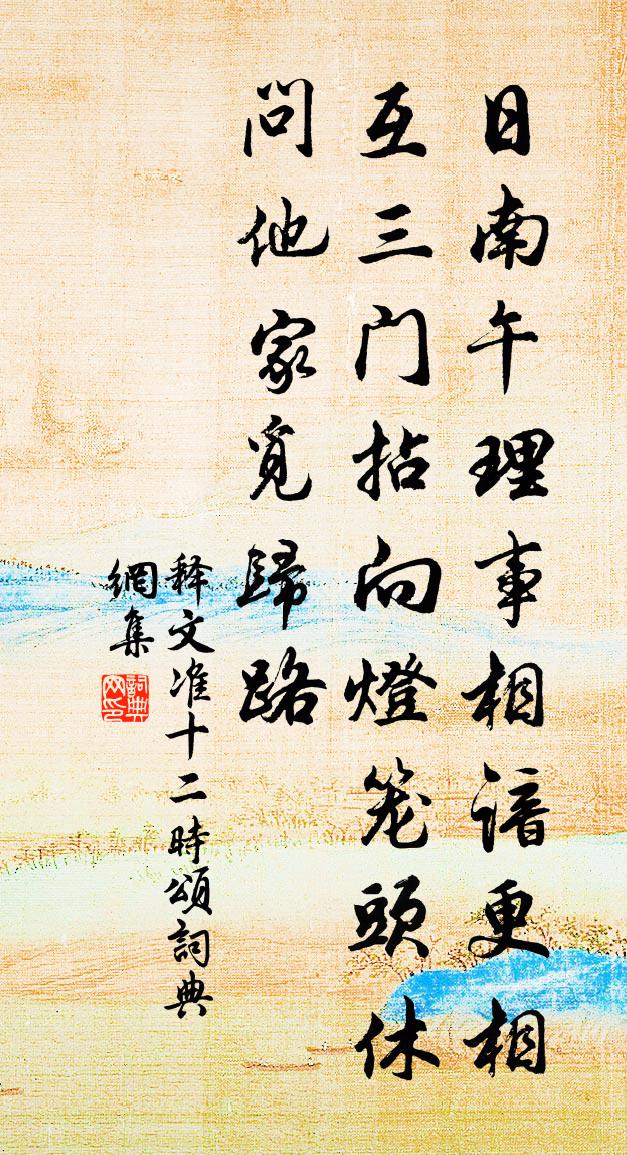 日南午理事相谙更相
互三门拈向燈笼頭休
问他家觅歸路
释文准十二時頌詞典
網集
詞典
网印